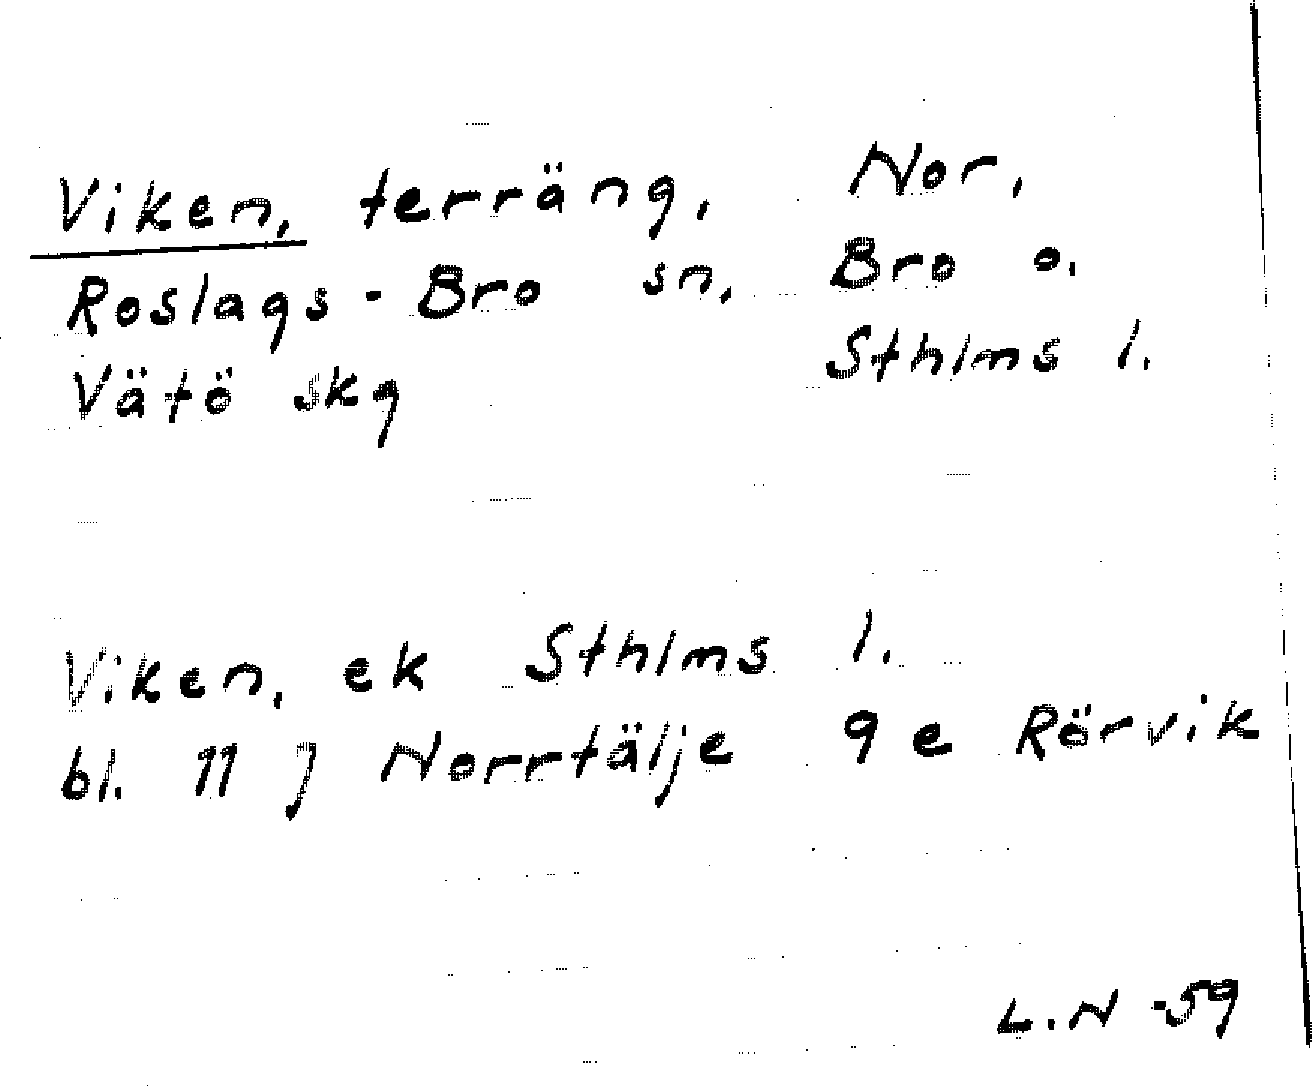 Viken, terräng, Nor,
Roslags-Bro sn, Bro o.
Vätö skg Sthlms l.
Viken, ek Sthlms l.
bl. 11 J Norrtälje 9 e Rörvik
L.N -59